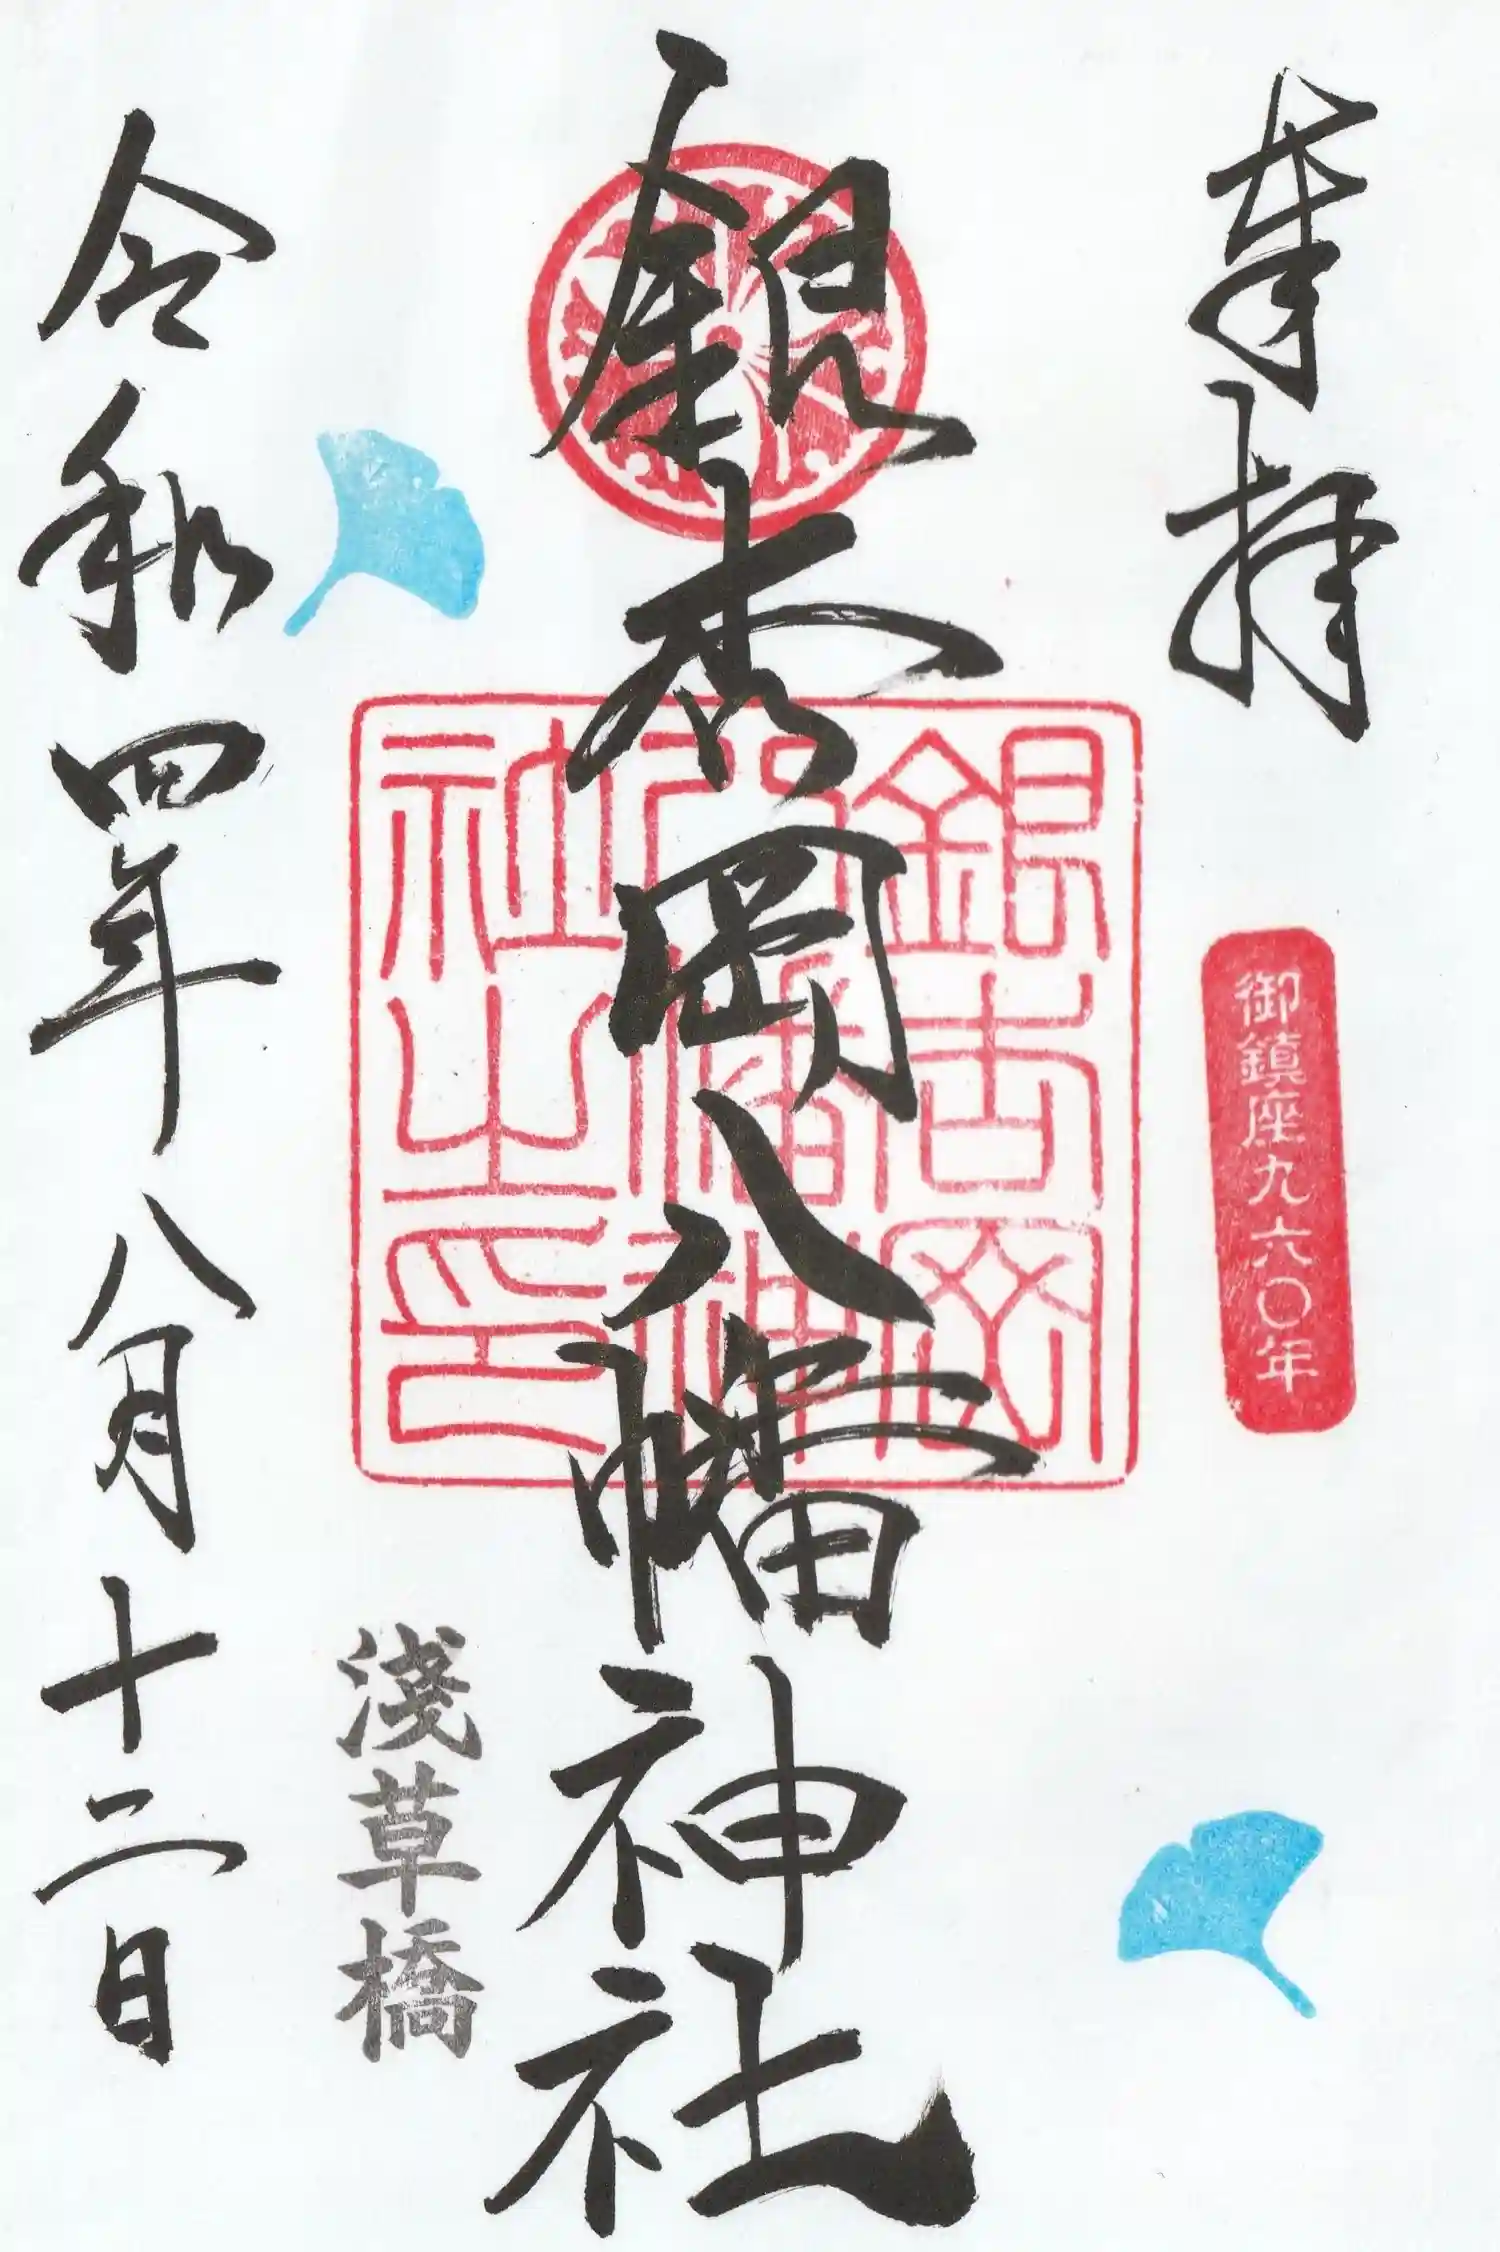 奉拝
御鎮座九六〇年
銀杏岡八幡神社
銀杏岡八幡神社之印
淺草橋
令和四年八月十二日